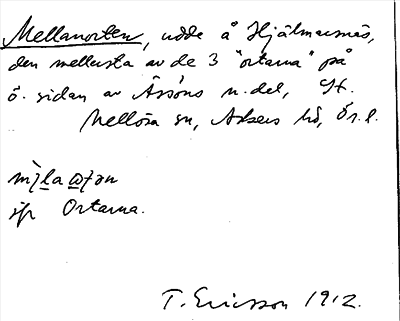 Mellanorten, udde å Hjälmarsnäs,
den mellersta av de 3 "ortarna" på
ö. sidan av Åsöns n. del, St.
Mellösa sn, Askers hd, Ör. l.
jfr Ortarna.
T. Ericsson 1912.